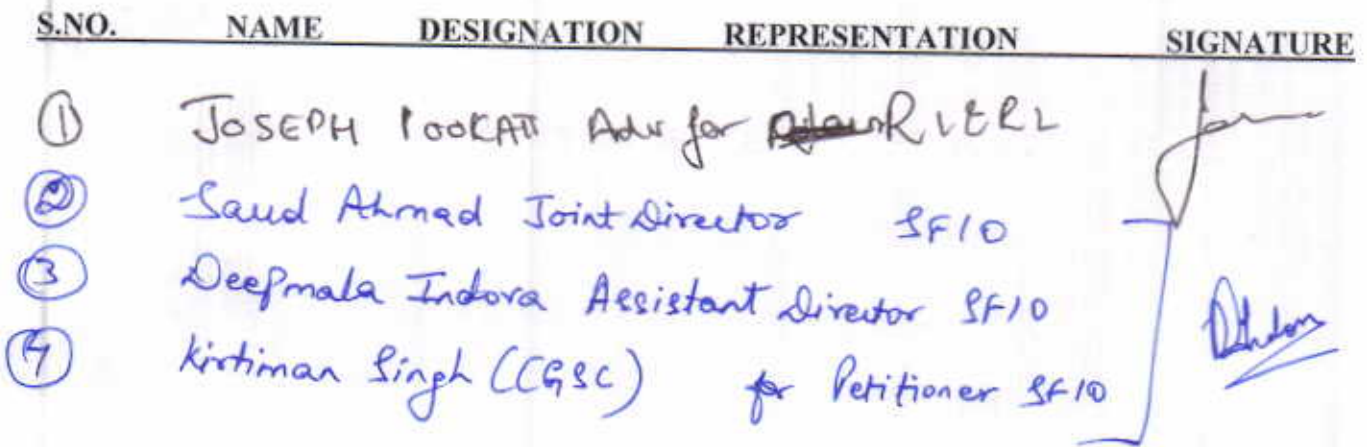 S.NO. NAME DESIGNATION REPRESENTATION SIGNATURE
1 JOSEPH POOKATT Adv for
2 Saud Ahmad Joint Director SFIO
3 Deepmala Indora Assistant Director SFIO
4 Kirtiman Singh (CGSC) for Petitioner SFIO